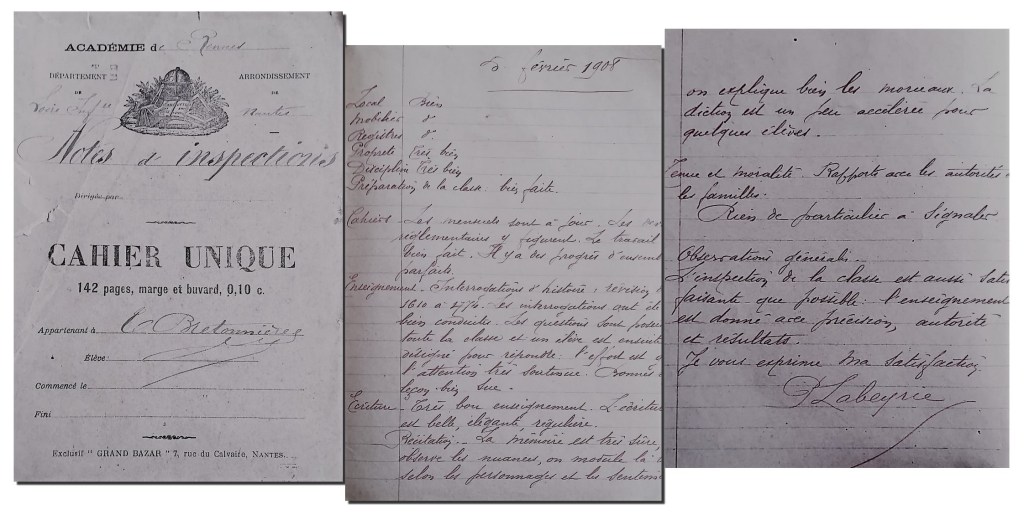 ACADÉMIE de Rennes
DÉPARTEMENT
DE
Loire Infre
ARRONDISSEMENT
DE
Nantes
Notes d'inspections
Dirigée par
CAHIER UNIQUE
142 pages, marge et buvard, 0,10 c.
Appartenant à C. Bretonnière
Élève
Commencé le
Fini
Exclusif " GRAND BAZAR " 7, rue du Calvaire, NANTES.
5 février 1908
Local Bien
Mobilier d°
Registres d°
Propreté Très bien
Discipline Très bien
Préparation de la classe : bien faite.
Cahiers - Les mensuels sont à jour. Les
réglementaires y figurent. Le travail
bien fait. Il y a des progrès d'ensem
parfaits.
Enseignement - Interrogations d'histoire : révision
1610 à 1774. Les interrogations ont é
bien conduites. Les questions sont posées
toute la classe et un élève est ensuite
désigné pour répondre : l'effort est
l'attention très soutenue. Bonnes
leçon bien sue.
Ecriture - Très bon enseignement. L'écriture
est belle, élégante, régulière.
Récitation. - La mémoire est très sûre,
observe les nuances, on module la
selon les personnages et les sentim
on explique bien les morceaux. La
diction est un peu accélérée pour
quelques élèves.
Tenue et moralité - Rapports avec les autorités
les familles.
Rien de particulier à signaler
Observations générales.
L'inspection de la classe est aussi satis
faisante que possible : l'enseignement
est donné avec précision, autorité
et résultats.
Je vous exprime ma satisfaction.
P Labeyrie